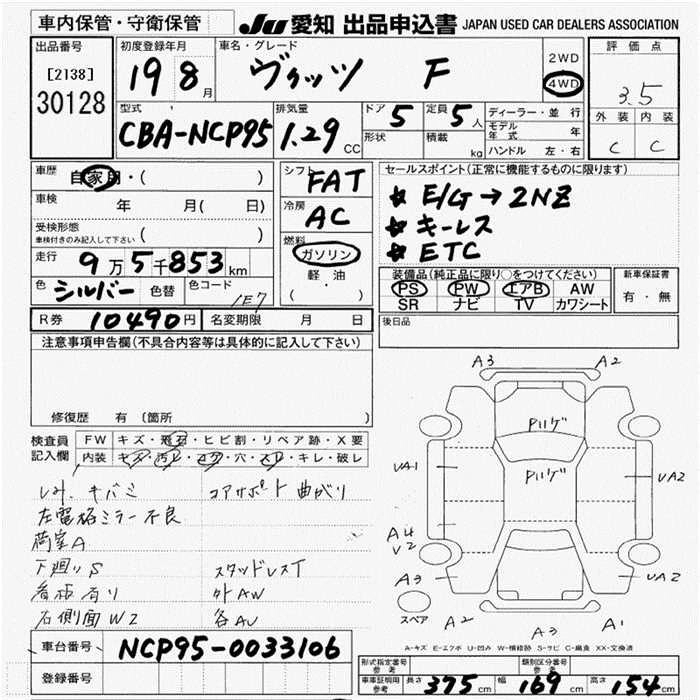 車内保管・守衛保管 JU 愛知 出品申込書 JAPAN USED CAR DEALERS ASSOCIATION
出品番号 [2138] 30128
初度登録年月 19 8月
車名・グレード ヴィッツ F
2WD 4WD
評価点 3.5
外装 内装
C C
型式 CBA-NCP95
排気量 1.29 CC
ドア 5 定員 5人
形状 積載 kg
ディーラー・並行
モデル年式 年
ハンドル 左・右
車歴 自家用・( )
車検 年 月( 日)
受検形態 ( )
車検付きのみ記入して下さい
走行 9万5千853km
色 シルバー 色替 色コード 1E7
シフト FAT
冷房 AC
燃料 ガソリン
軽・油
( )
セールスポイント(正常に機能するものに限ります)
E/G→2NZ
キーレス
ETC
装備品(純正品に限り○をつけてください)
PS PW エアB AW
SR ナビ TV カワシート
新車保証書
有・無
R券 10490円 名変期限 月 日
後日品
注意事項申告欄(不具合内容等は具体的に記入して下さい)
修復歴 有 (箇所 )
検査員記入欄 FW キズ・飛石・ヒビ割・リペア跡・X要
内装 キズ・汚レ・コゲ・穴・スレ・キレ・破レ
シミ、キバミ コアサポート曲がり
左電格ミラー不良
荷室A
下廻りS スタッドレスT
看板有り 外AW
右側面W2 各AU
A3 A2
Pハゲ
UA1 Pハゲ UA2
A4
U2
A3 UA2
スペア A2 A3 A1
A-キズ E-エクボ U-凹み W-補修跡 S-サビ C-腐食 XX-交換済
車台番号 NCP95-0033106
登録番号
形式指定番号 参考 類別区分番号 参考
車庫証明用 参考 長さ 375cm 幅 169cm 高さ 154cm